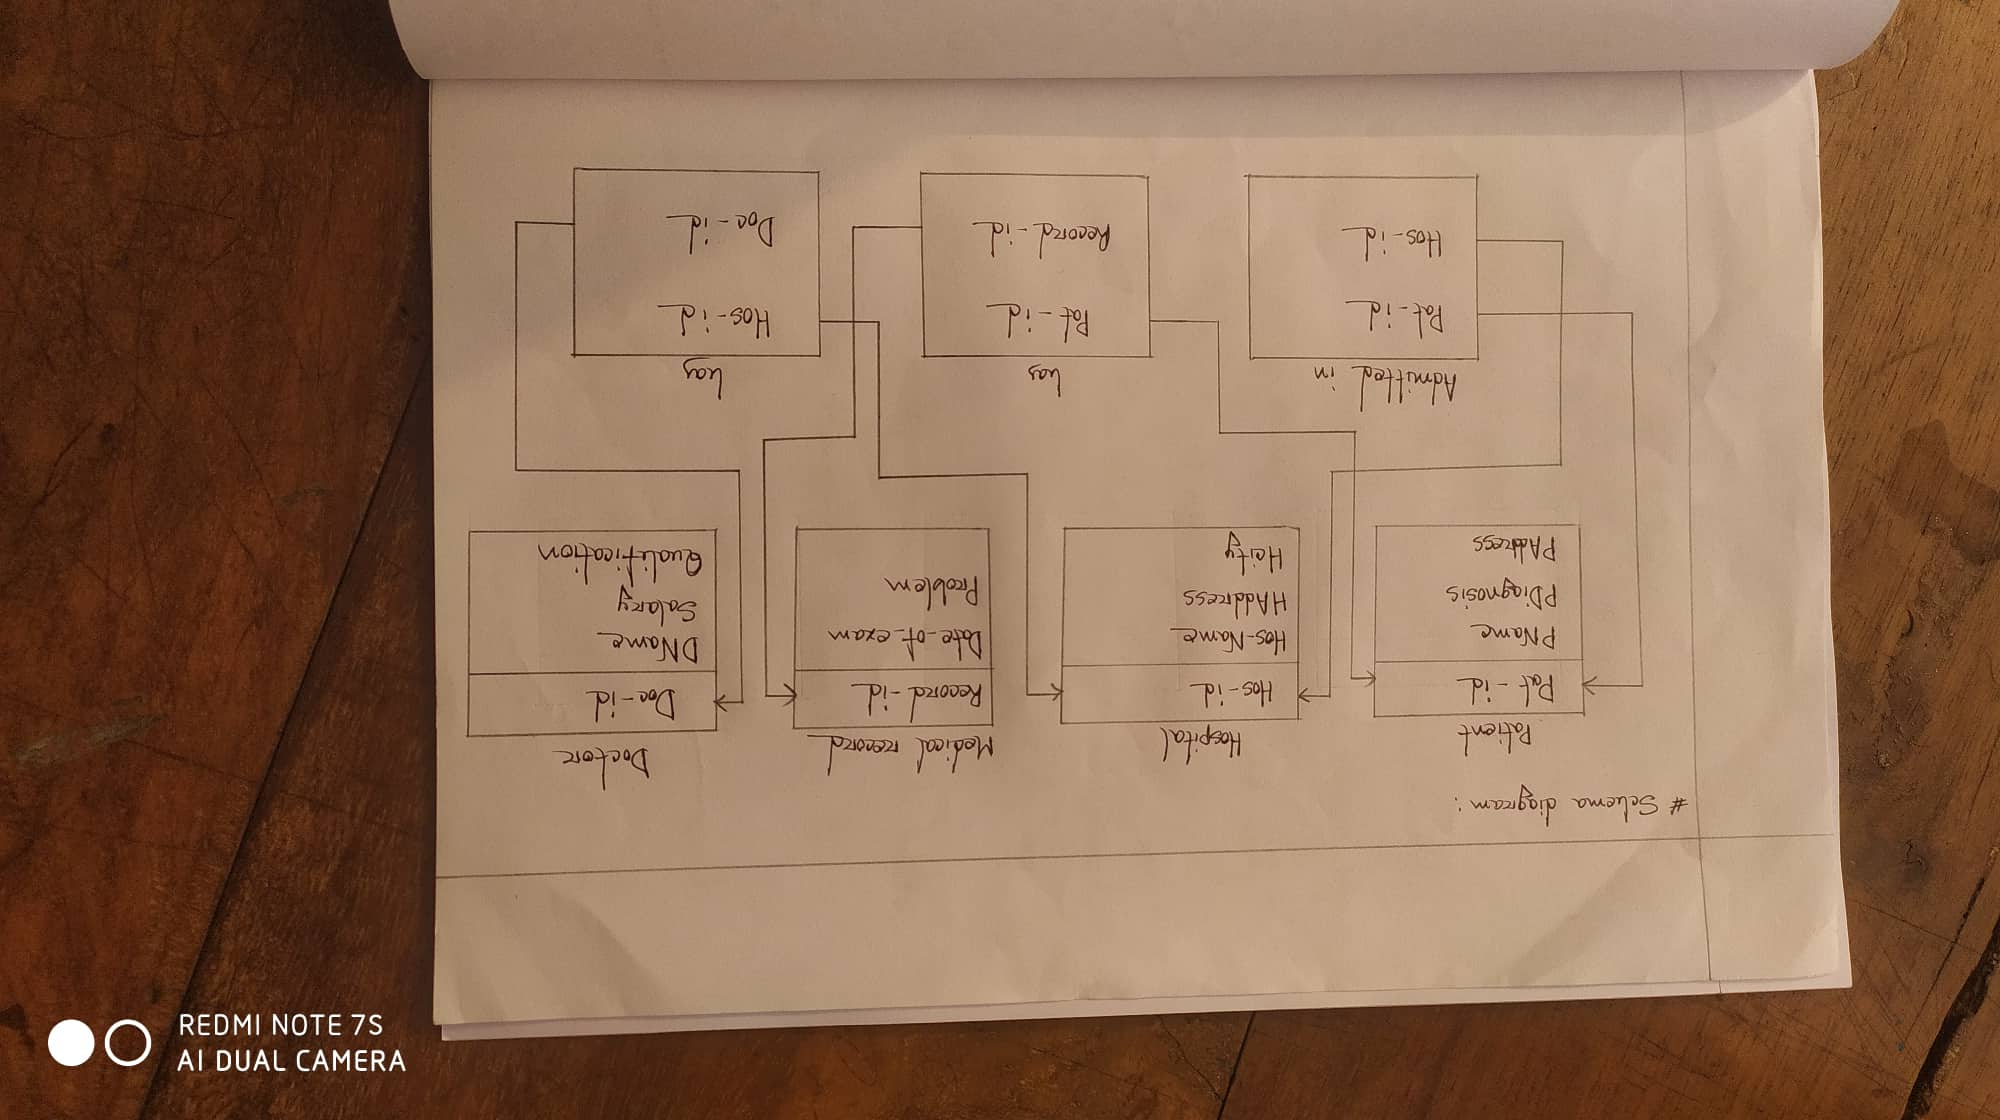 # Schema diagram:
Patient
Pat-id
PName
PDiagnosis
PAddress
Hospital
Hos-id
Hos-Name
HAddress
Hcity
Medical record
Record-id
Date-of-exam
Problem
Doctor
Doc-id
DName
Salary
Qualification
Admitted in
Pat-id
Hos-id
has
Pat-id
Record-id
has
Hos-id
Doc-id
REDMI NOTE 7S
AI DUAL CAMERA